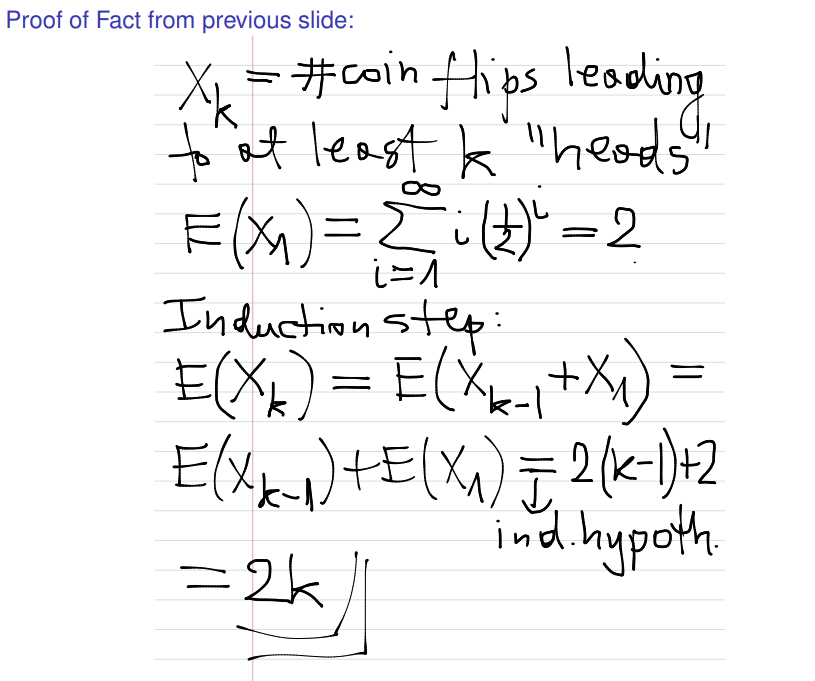 Proof of Fact from previous slide:
X_k = #coin flips leading
to at least k "heads"
E(X_1) = ∑_{i=1}^{∞} i(1/2)^i = 2
Induction step:
E(X_k) = E(X_{k-1}+X_1) =
E(X_{k-1})+E(X_1) = 2(k-1)+2
↓
ind.hypoth.
= 2k